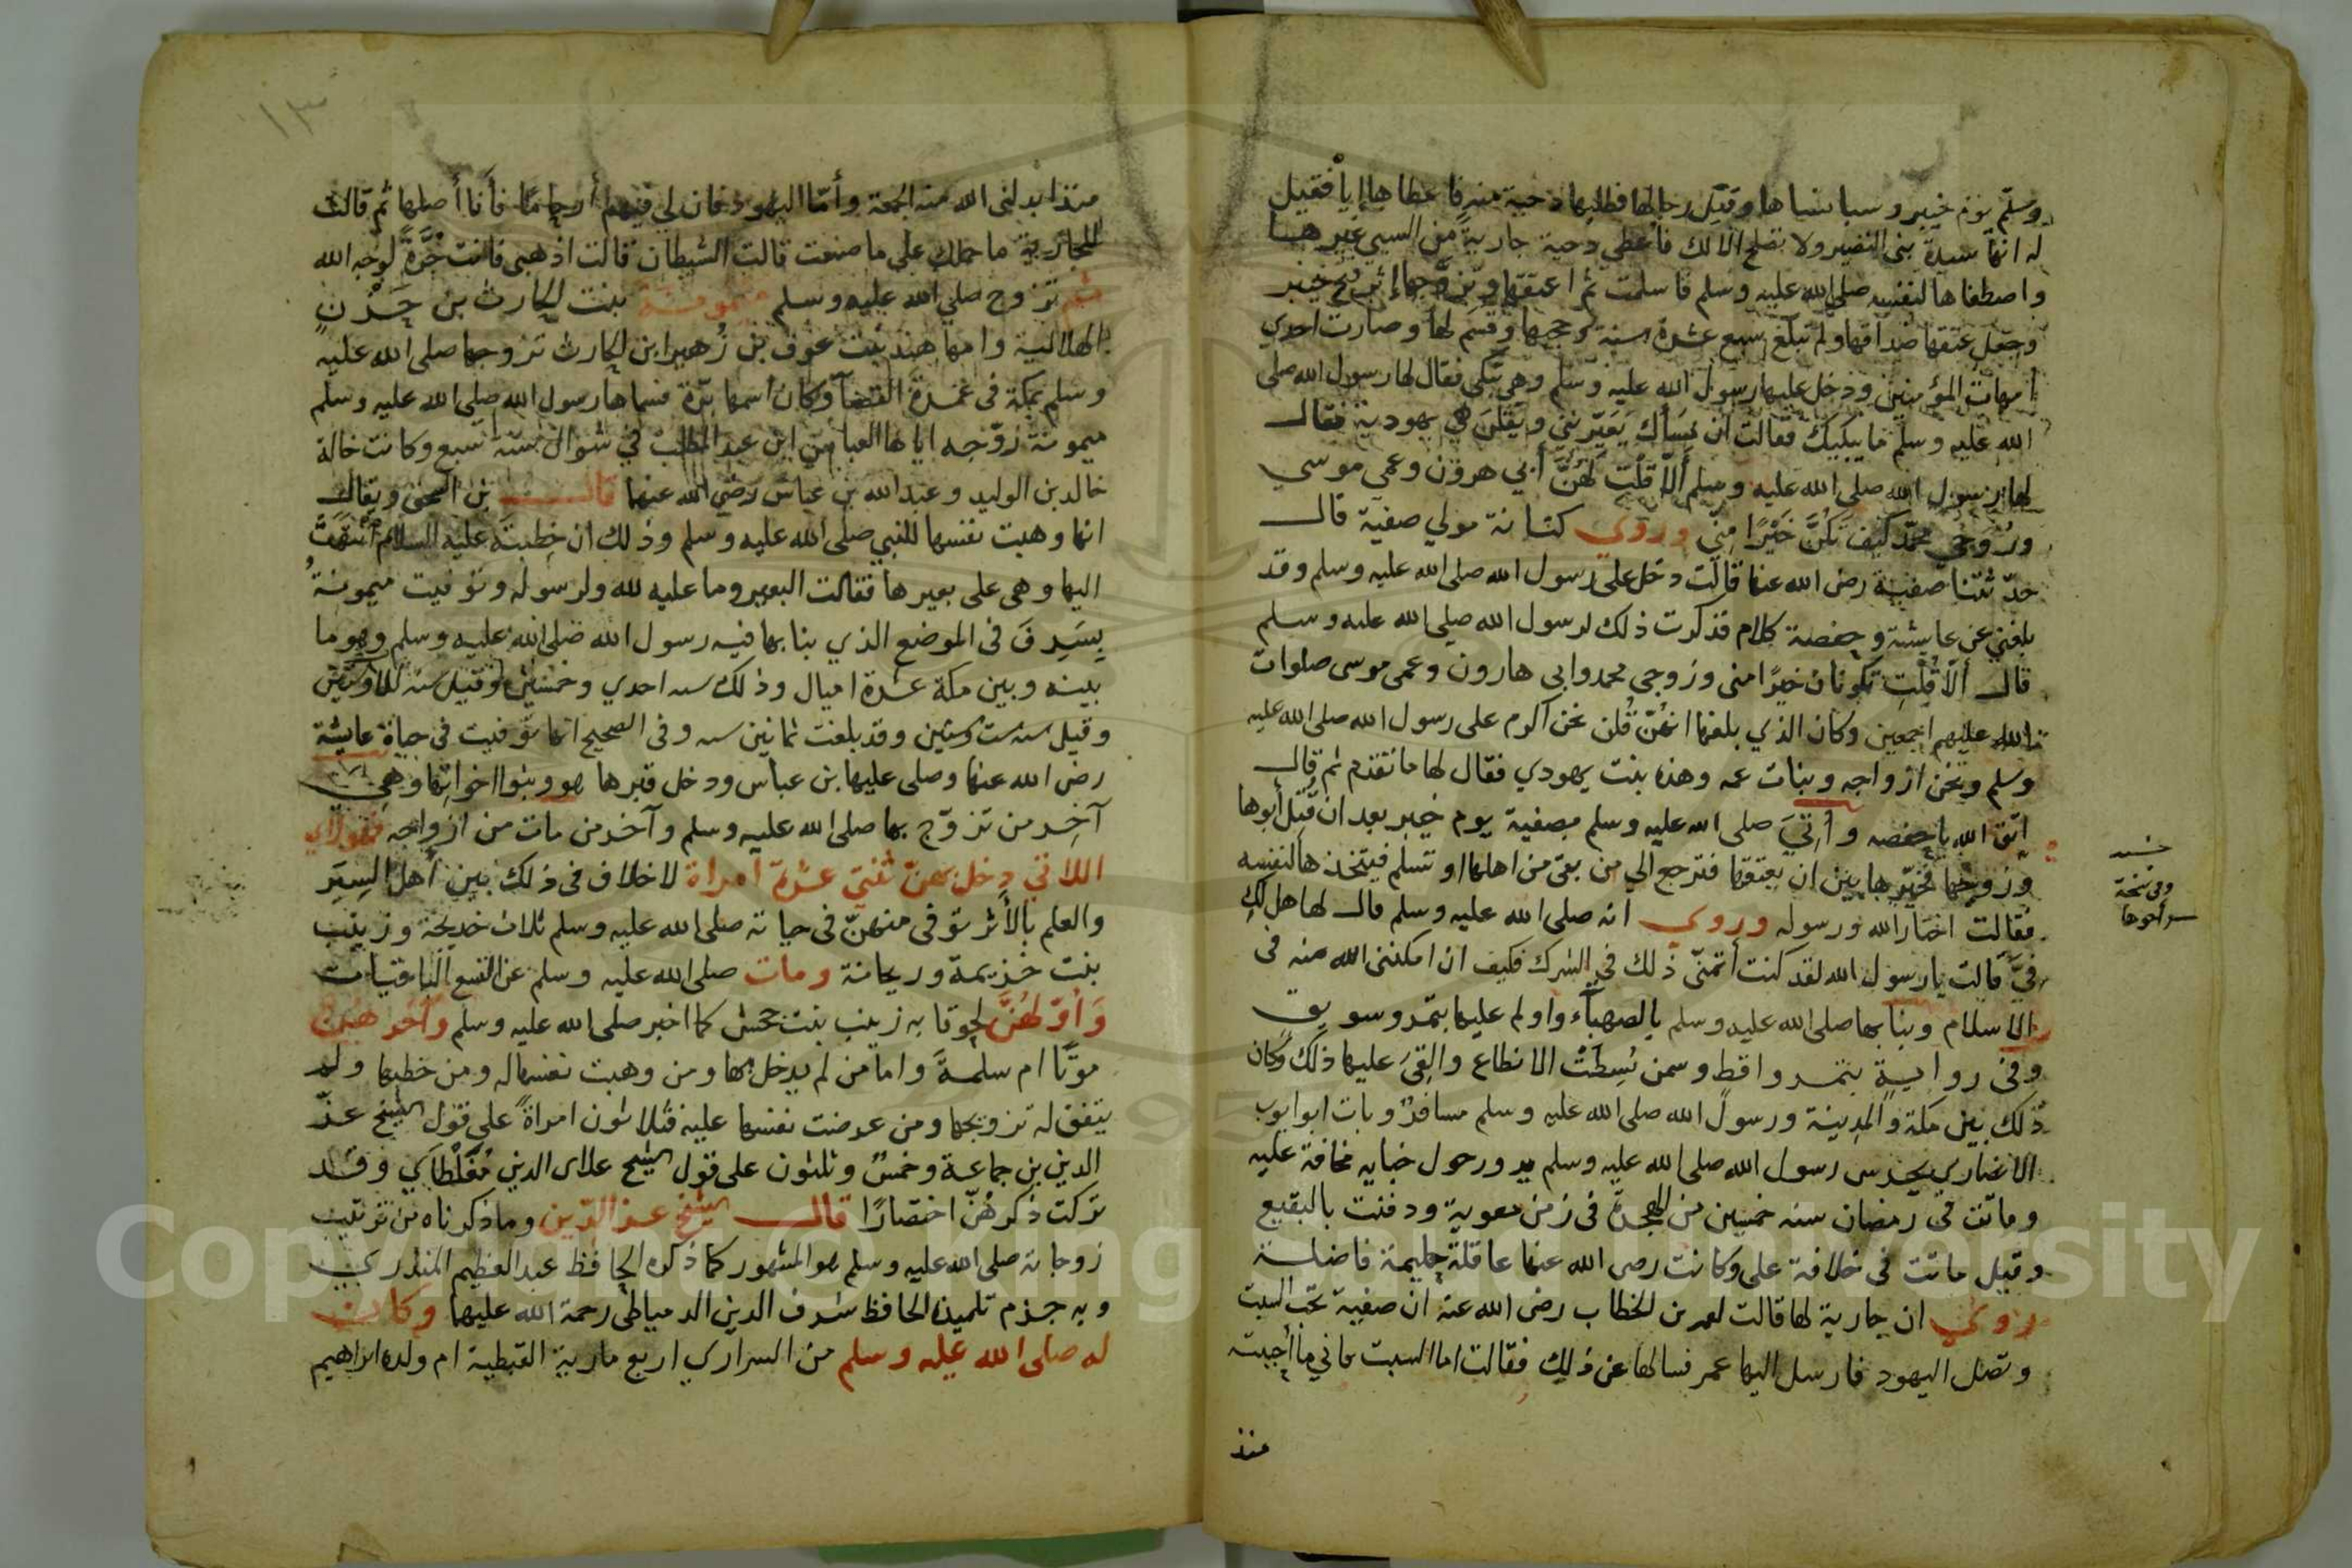 وسلم يوم خيبر وسبا نساها وقتل رجالها فطلبها دحية منه فاعطاها إياه فقيل
له انها سيدة بني النضير ولا تصلح الا لك فأعطي دحية جارية من السبي غيرها
واصطفاها لنفسه صلى الله عليه وسلم فاسلمت ثم اعتقها وتزوجها إثر فتح خيبر
وجعل عتقها صداقها ولم تبلغ سبع عشرة سنة وحجبها وقسم لها وصارت احدي
أمهات المؤمنين ودخل عليها رسول الله عليه وسلم وهي تبكي فقال لها رسول الله صلى
الله عليه وسلم ما يبكيك فقالت ان نسأك يعيرنني ويقلن هي يهودية فقال
لها رسول الله صلى الله عليه وسلم ألا قلت لهن أبي هرون وعمي موسي
وزوجي محمد كيف تكن خيرا مني وروي كنانة مولي صفية قال
حدثتنا صفية رضى الله عنها قالت دخل على رسول الله صلى الله عليه وسلم وقد
بلغني عن عايشة وحفصة كلام فذكرت ذلك لرسول الله صلى الله عليه وسلم
قال ألا قلت تكونان خيرا منى وزوجي محمد وابى هارون وعمى موسى صلوات
الله عليهم اجمعين وكان الذي بلغها انهن قلن نحن اكرم على رسول الله صلى الله عليه
وسلم ونحن ازواجه وبنات عمه وهذه بنت يهودي فقال لها ما تقدم ثم قال
اتق الله يا حفصه وأتي صلى الله عليه وسلم بصفية يوم خيبر بعد ان قتل أبوها
وزوجها فخيرها بين ان يعتقها فترجع الي من بقى من اهلها او تسلم فيتخذها لنفسه
فقالت اختار الله ورسوله وروي انه صلى الله عليه وسلم قال لها هل لك
في قالت يا رسول الله لقد كنت أتمنى ذلك في الشرك فكيف ان امكننى الله منه فى
الاسلام وبنا بها صلى الله عليه وسلم بالصهباء واولم عليها بتمر وسويق
وفى رواية بتمر واقط وسمن بسطت الانطاع والقى عليها ذلك وكان
ذلك بين مكة والمدينة ورسول الله صلى الله عليه وسلم مسافر وبات ابو ايوب
الانصاري يحرس رسول الله صلى الله عليه وسلم يدور حول خبايه مخافة عليه
وماتت في رمضان سنه خمسين من الهجرة فى زمن معوية ودفنت بالبقيع
وقيل ماتت فى خلافة على وكانت رضى الله عنها عاقلة حليمة فاضلة
روي ان جارية لها قالت لعمر بن الخطاب رضى الله عنه ان صفية تحب السبت
وتصل اليهود فارسل اليها عمر فسالها عن ذلك فقالت اما السبت فاني ما أحببته
منذ
وفى نسخة
أخوها
١٣
منذ ابدلنى الله منه الجمعة وأما اليهود فان لي فيهم أرحاما فأنا أصلها ثم قالت
للجارية ما حملك على ما صنعت قالت الشيطان قالت اذهبى فانت حرة لوجه الله
ثم تزوج صلي الله عليه وسلم ميمونة بنت الحارث بن حزن
الهلالية وامها هند بنت عوف بن زهير ابن الحارث تزوجها صلى الله عليه
وسلم بمكة فى عمرة القضآ وكان اسمها برة فسماها رسول الله صلى الله عليه وسلم
ميمونة زوجه اياها العباس ابن عبد المطلب في شوال سنة سبع وكانت خالة
خالد بن الوليد وعبد الله بن عباس رضي الله عنهما قال بن اسحق ويقال
انها وهبت نفسها للنبي صلى الله عليه وسلم وذلك ان خطبته عليه السلام انتهت
اليها وهى على بعيرها فقالت البعير وما عليه لله ولرسوله وتوفيت ميمونة
بسرف فى الموضع الذي بنا بها فيه رسول الله صلى الله عليه وسلم وهو ما
بينه وبين مكة عشرة اميال وذلك سنه احدي وخمسين وقيل سنه ثلاث وستين
وقيل سنه ست وستين وقد بلغت ثمانين سنه وفى الصحيح انها توفيت في حياة عايشة
رضى الله عنها وصلى عليها بن عباس ودخل قبرها هو وبنوا اخواتها وهى
آخر من تزوج بها صلى الله عليه وسلم وآخر من مات من ازواجه فهولاي
اللاتي دخل بهن ثنتي عشرة امراة لا خلاف فى ذلك بين أهل السير
والعلم بالأثر توفى منهن فى حياته صلى الله عليه وسلم ثلاث خديجة وزينب
بنت خزيمة وريحانة ومات صلى الله عليه وسلم عن التسع الباقيات
وأولهن لحوقا به زينب بنت جحش كما اخبر صلى الله عليه وسلم وآخرهن
موتا ام سلمة واما من لم يدخل بها ومن وهبت نفسها له ومن خطبها ولم
يتفق له تزويجها ومن عرضت نفسها عليه فثلاثون امراة على قول الشيخ عز
الدين بن جماعة وخمس وثلثون على قول الشيخ علاى الدين مغلطاي وقد
تركت ذكرهن اختصارا قال الشيخ عز الدين وما ذكرناه من ترتيب
زوجاته صلى الله عليه وسلم هو المشهور كما ذكره الحافظ عبد العظيم المنذري
وبه جزم تلميذه الحافظ شرف الدين الدمياطى رحمة الله عليهما وكان
له صلى الله عليه وسلم من السراري اربع مارية القبطية ام ولده ابراهيم
Copyright © King Saud University